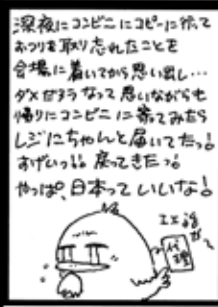 深夜にコンビニにコピーに行って
おつりを取り忘れたことを
会場に着いてから思い出し…
ダメだろうなって思いながらも
帰りにコンビニに寄てみたら
レジにちゃんと届いてたっ!
すげいっ!! 戻ってきたっ!
やっぱ、日本っていいな!
イイ話だ〜
代理